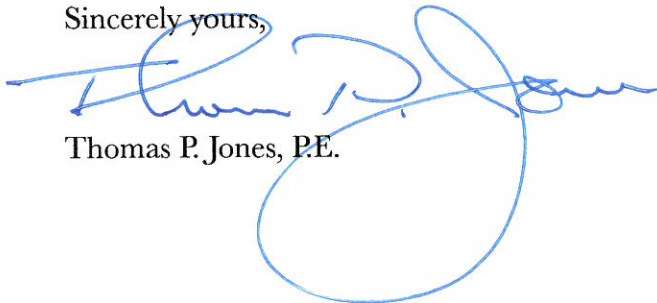 Sincerely yours,
Thomas P. Jones
Thomas P. Jones, P.E.